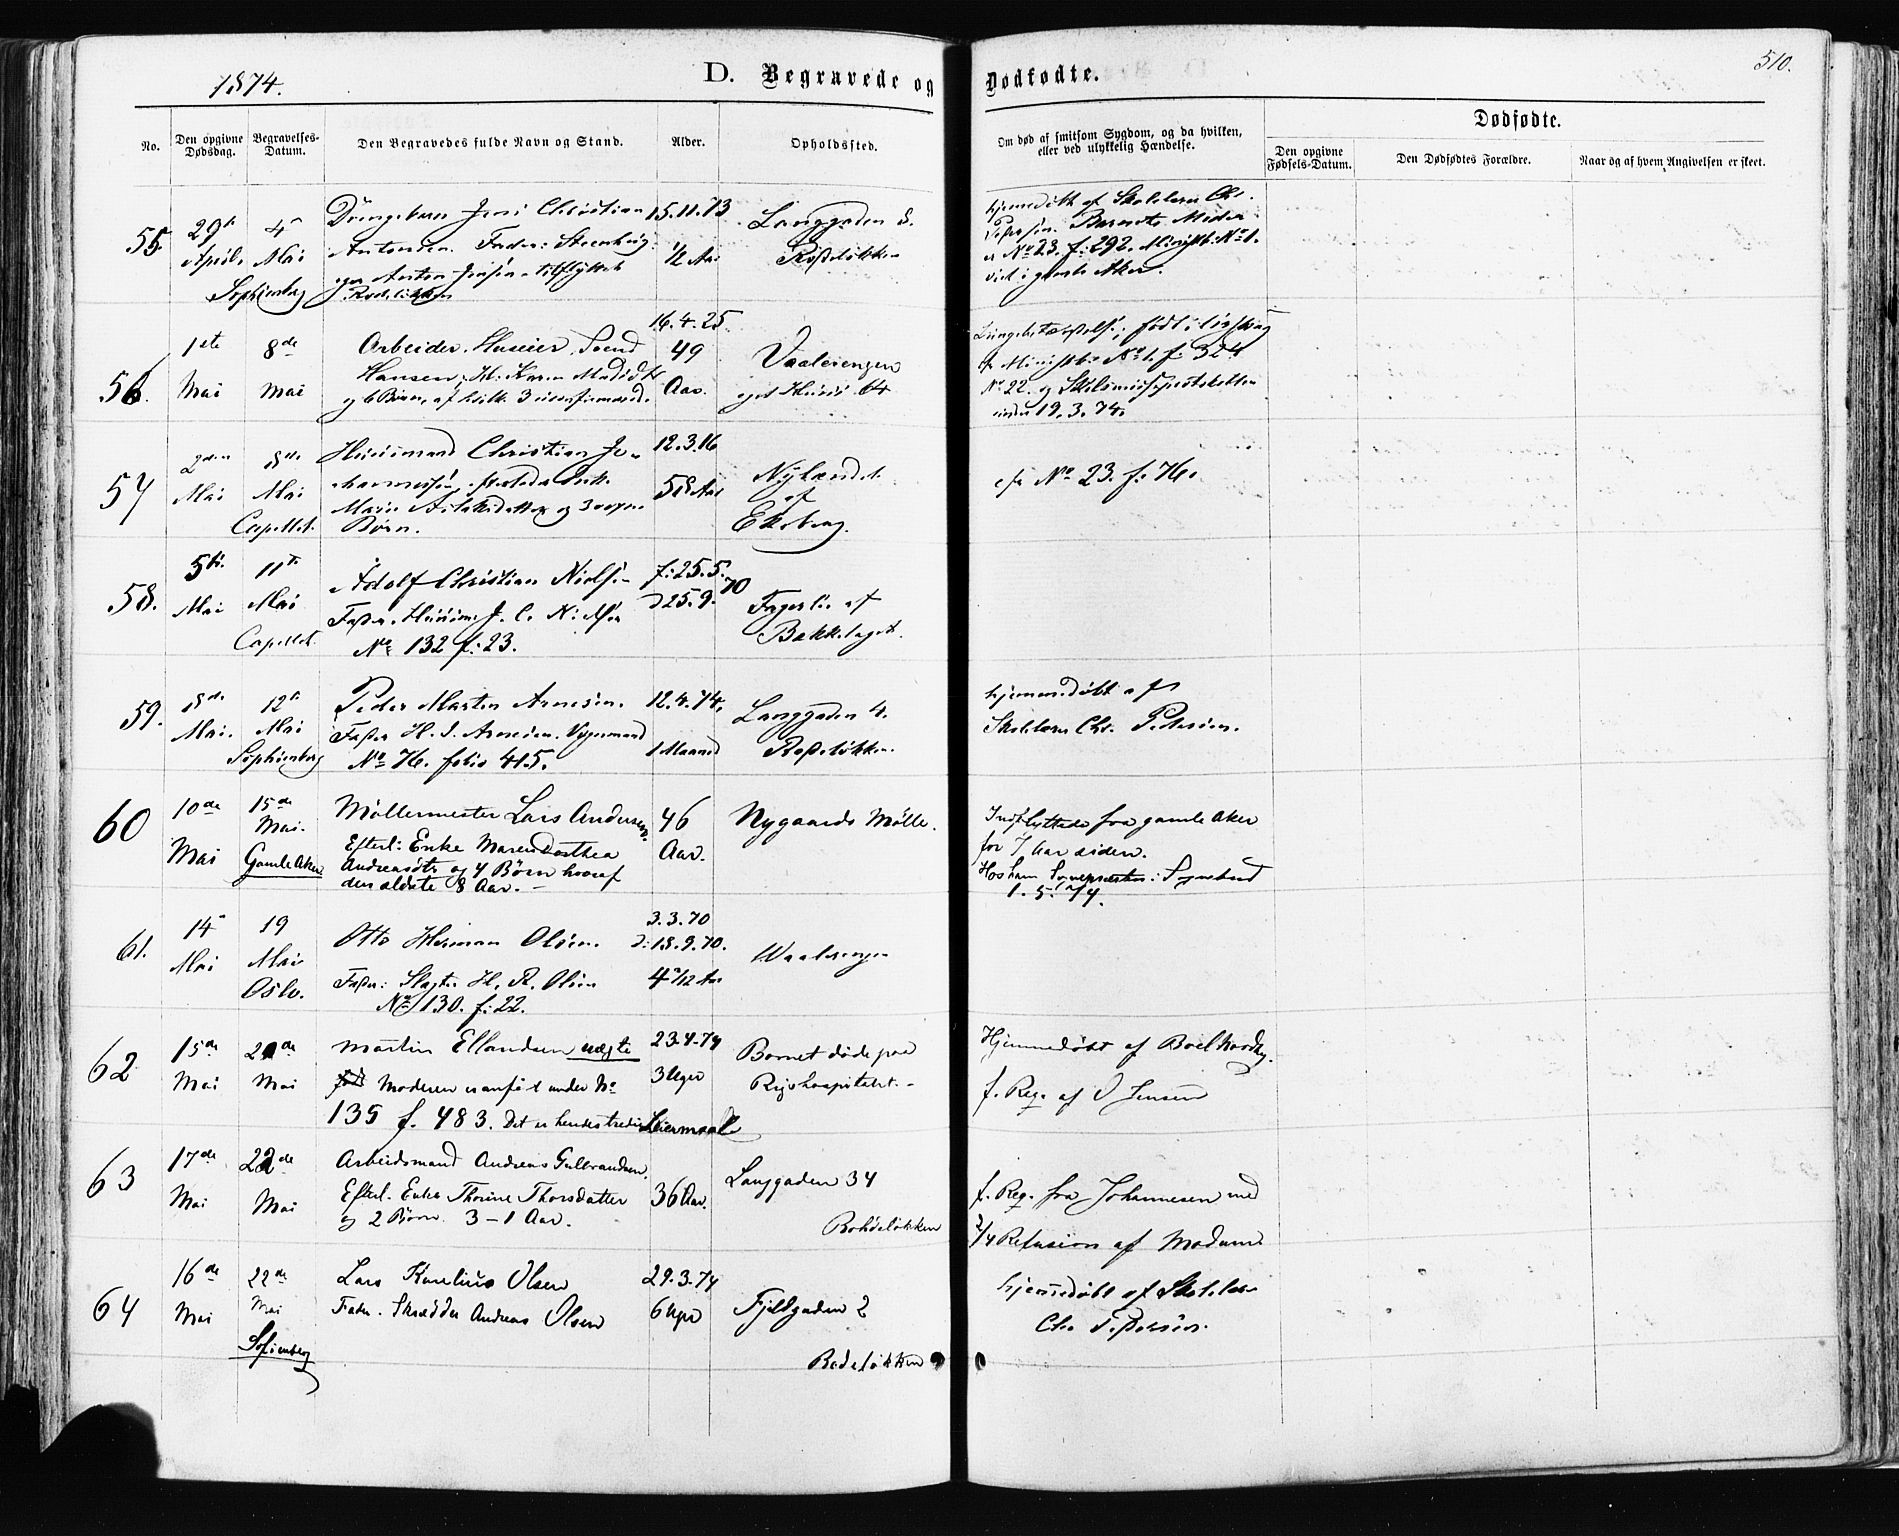 1874.
D. Begravede og Dødfødte.
510.
No.
Den opgivne Dødsdag.
Begravelses-Datum.
Den Begravedes fulde Navn og Stand.
Alder.
Opholdssted.
Om død af smitsom Sygdom, og da hvilken, eller ved ulykkelig Hændelse.
Dødfødte.
Den opgivne Fødsels-Datum.
Den Dødfødtes Forældre.
Naar og af hvem Angivelsen er skeet.
55
29
April
4
Mai
Sophienberg
Drengebarn Jens Christian
Antonsen. Fader:
Anton
15.11.73
1/2 Aar
Langgaden
hjemmedøbt af Skolelærer Chr.
Barnets Moder
No 23. f: 292. No 1.
gamle Aker.
56.
1ste
Mai
8de
Mai
Arbeider, Huseier, Svend
Hansen, Karen
og 6 Børn, af hvilke 3 uconfirmerede
16.4.25.
49
Aar.
Vaalerengen
eget Huus 64
No 1. f: 324
No 22. og
under 19.3.74.
57
2den
Mai
8de
Mai
Capellet.
Huusmand Christian Jo-
hannesen, efterlader Enke
Marie og 3 voxne
Børn.
12.3.16
58 Aar
Nylændet
af
Ekeberg.
cfr No 23. f: 76.
58.
5te
Mai
11te
Mai
Capellet.
Adolf Christian Niels.
Fader. Huusm. J. C. Nielsen
No 132 f: 23.
f: 25.5.70
d 25.9.
Fagerlie af
Bækkelaget.
59.
8de
Mai.
12te
Mai
Sophienberg
Peder Martin Arnesen.
Fader H. J. Arnesen. Vognmand
No 76. folio 415.
12.4.74.
1 Maaned
Langgaden 4.
Rodeløkken.
hjemmedøbt af
Skolelærer Chr. Petersen.
60
10de
Mai
15de
Mai.
Gamle Aker
Møllermester Lars Andersen.
Efterl: Enke Maren Dorthea
Andreasdtr og 4 Børn hvoraf
den ældste 8 Aar. –
46
Aar.
Nygaards Mølle.
Indflyttede fra gamle Aker
for 7 Aar siden.
Hos ham Sognepræsten i Sognebud
1.5.74.
61.
14
Mai
19
Mai
Oslo.
Otto Herman Olsen.
Fader: Slagter H. R. Olsen
No 130. f: 22.
3.3.70
D: 18.9.70.
4 2/12 Aar
Waalerengen
62
15de
Mai
21de
Mai
Martin Ellandsen uægte
Moderen er anført under No
135 f. 483. Det er hendes tredie Leiermaal
23.4.74
3 Uger
Barnet døde paa
Rigshospitalet. –
Hjemmedøbt af
f. Reg. af O Jensen
63
17de
Mai
22de
Mai
Arbeidsmand Andreas Gulbrandsen.
Efterl. Enke Thorine Thorsdatter
og 2 Børn 3 – 1 Aar.
36 Aar.
Langgaden 34
Rohdeløkken
f. Reg. fra Johannesen med
2/4 Refusion af Modum
64
16de
Mai
22de
Mai
Sofienberg
Lars Karelius Olsen
Fader. Skrædder Andreas Olsen
29.3.74
6 Uger
Fjeldgaden 2
Rodeløkken
hjemmedøbt af Skolelær
Chr Petersen.